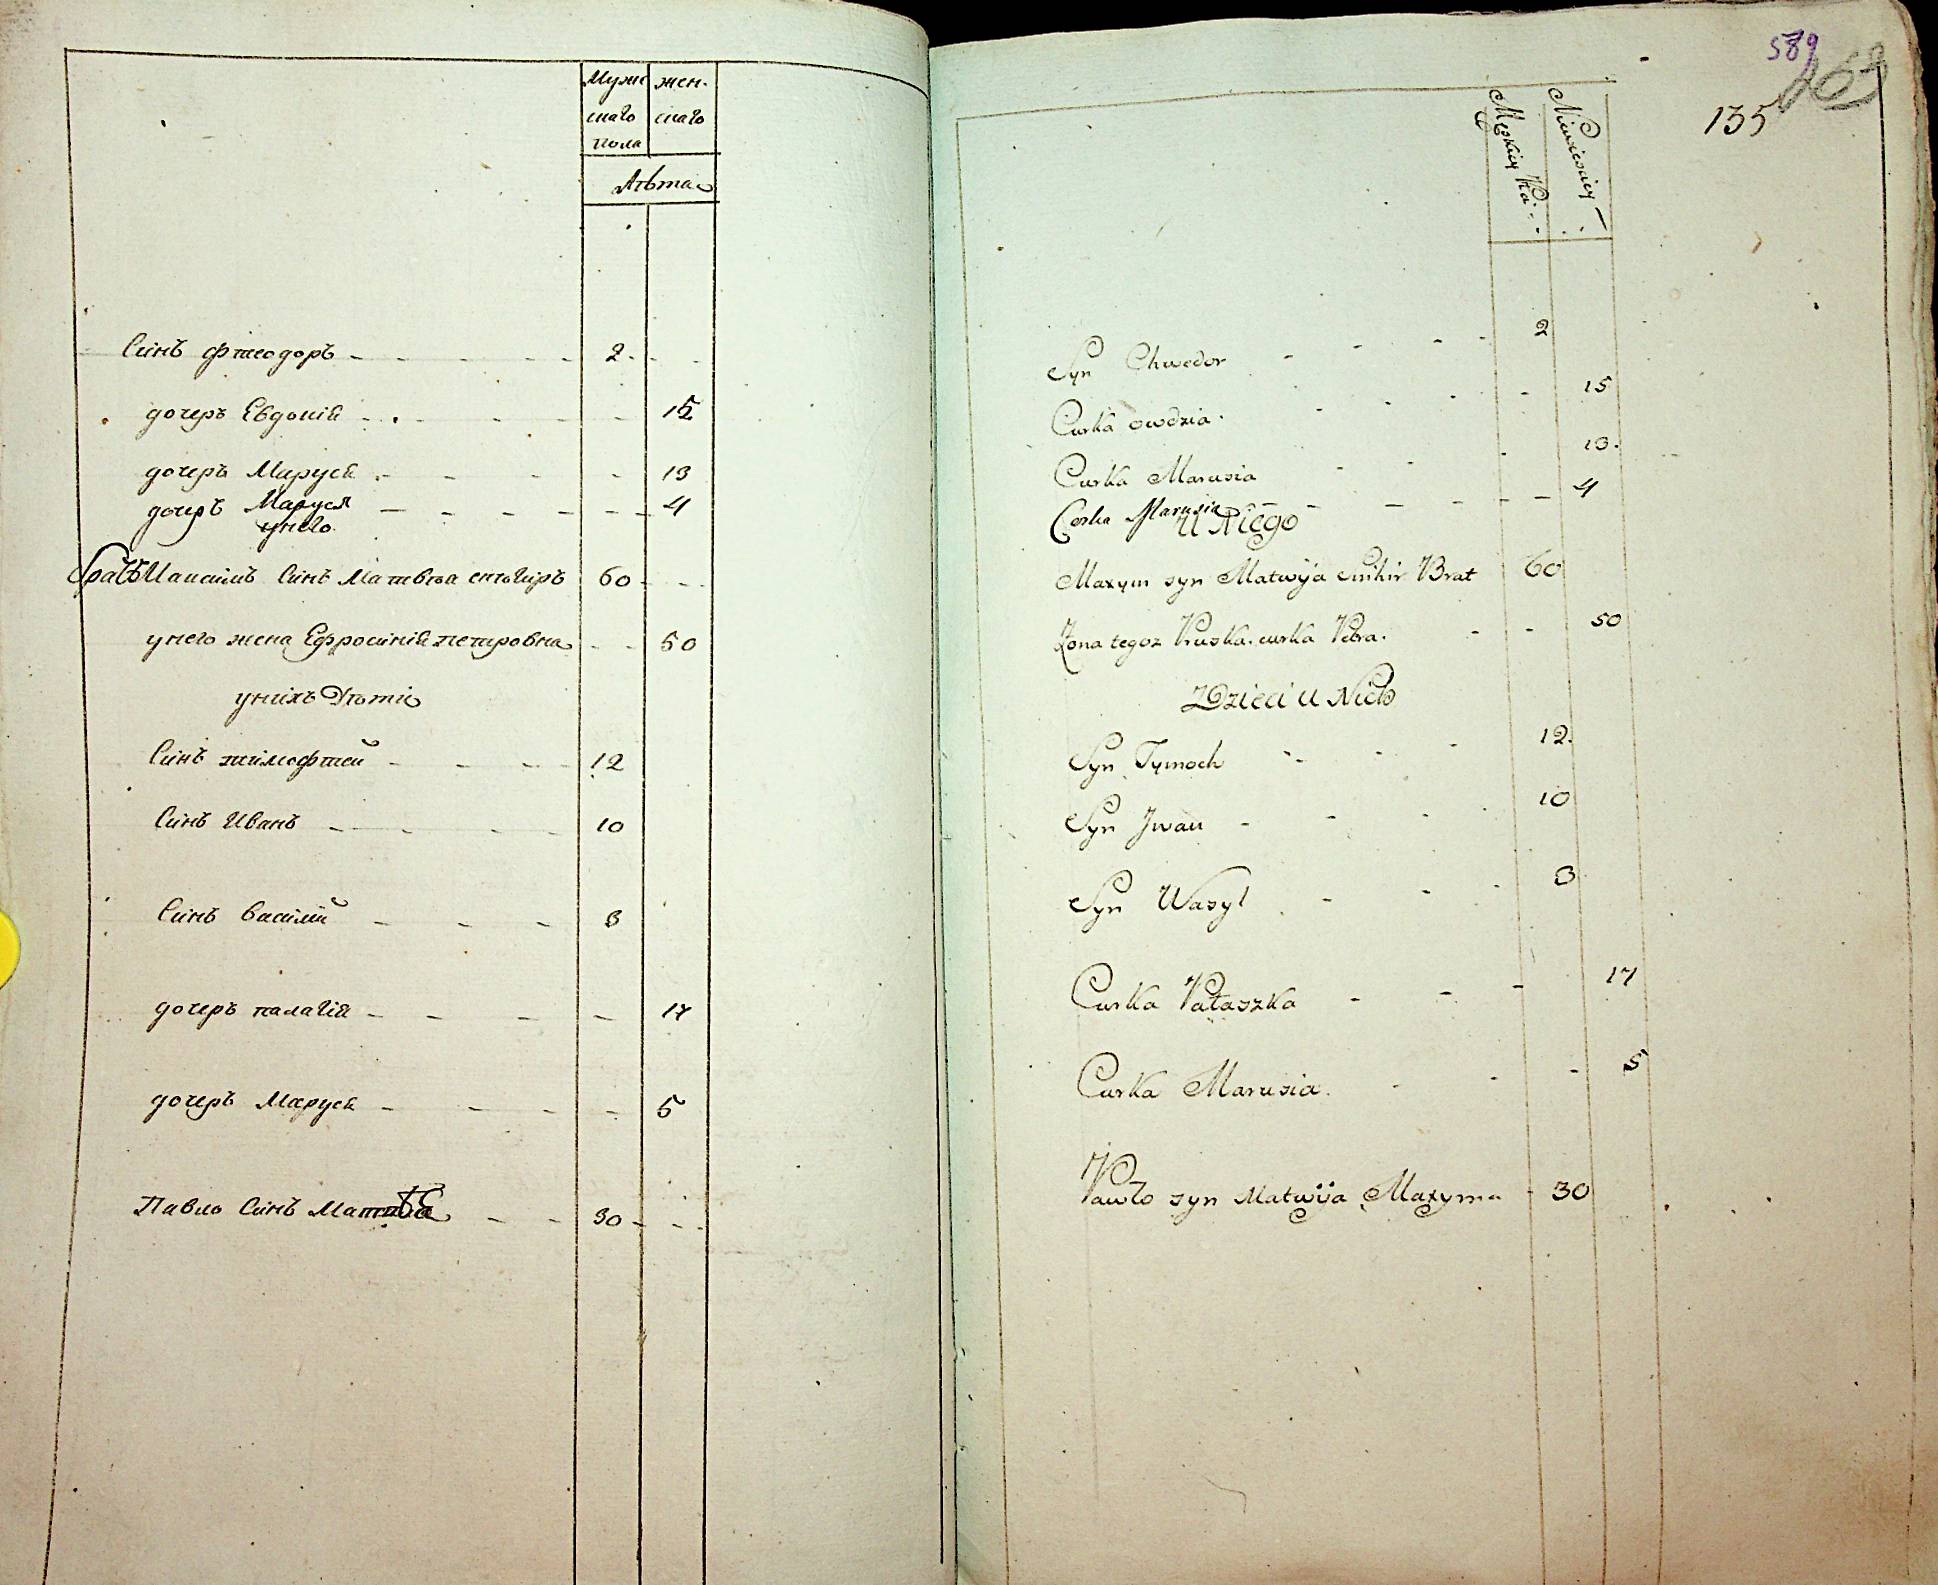 Муж
скаго
пола
жен-
скаго
Лѣта
Синъ Фтеодоръ - - - - - 2 - -
дочеръ Евдокія - - - - - 15
дочеръ Маруся - - - - 13
дочеръ Маруся - - - - - - 4
унего
братъ Максимъ Синъ Матвѣя снѣгиръ 60 - - -
унего жена Ефросинія петровна - - 50
унихъ Дѣти
Синъ тимофтей - - - - 12
Синъ Иванъ - - - - 10
Синъ Василій - - - 3
дочеръ палагія - - - - 17
дочеръ Маруся - - - - 5
Павло Синъ - - 30 - - -
589
135
Męzkiey
Syn Chwedor - - - - 2
Curka owdzia - - - - 15
Curka Marusia - - - 13.
Corka Marusia - - - - - 4
U Niego
Maxym syn Matwija Snihir Brat 60
Zona tegoz Pruska curka Petra. - - 50
Dzieci u Nich
Syn Tymoch - - - 12.
Syn Jwan - - - 10
Syn Wasyl - - - 3
Curka Pałaszka - - - 17
Curka Marusia. - - - 5
Pawło syn Matwija Maxyma - 30